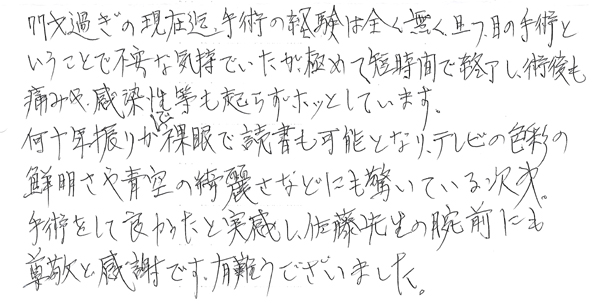 77才過ぎの現在迄、手術の経験は全く無く、且つ、目の手術と
いうことで不安な気持でいたが極めて短時間で終了し、術後も
痛みや、感染性等も起らずホッとしています。
何十年振りかに裸眼で読書も可能となり、テレビの色彩の
鮮明さや青空の綺麗さなどにも驚いている次第。
手術をして良かったと実感し、佐藤先生の腕前にも
尊敬と感謝です。有難うございました。